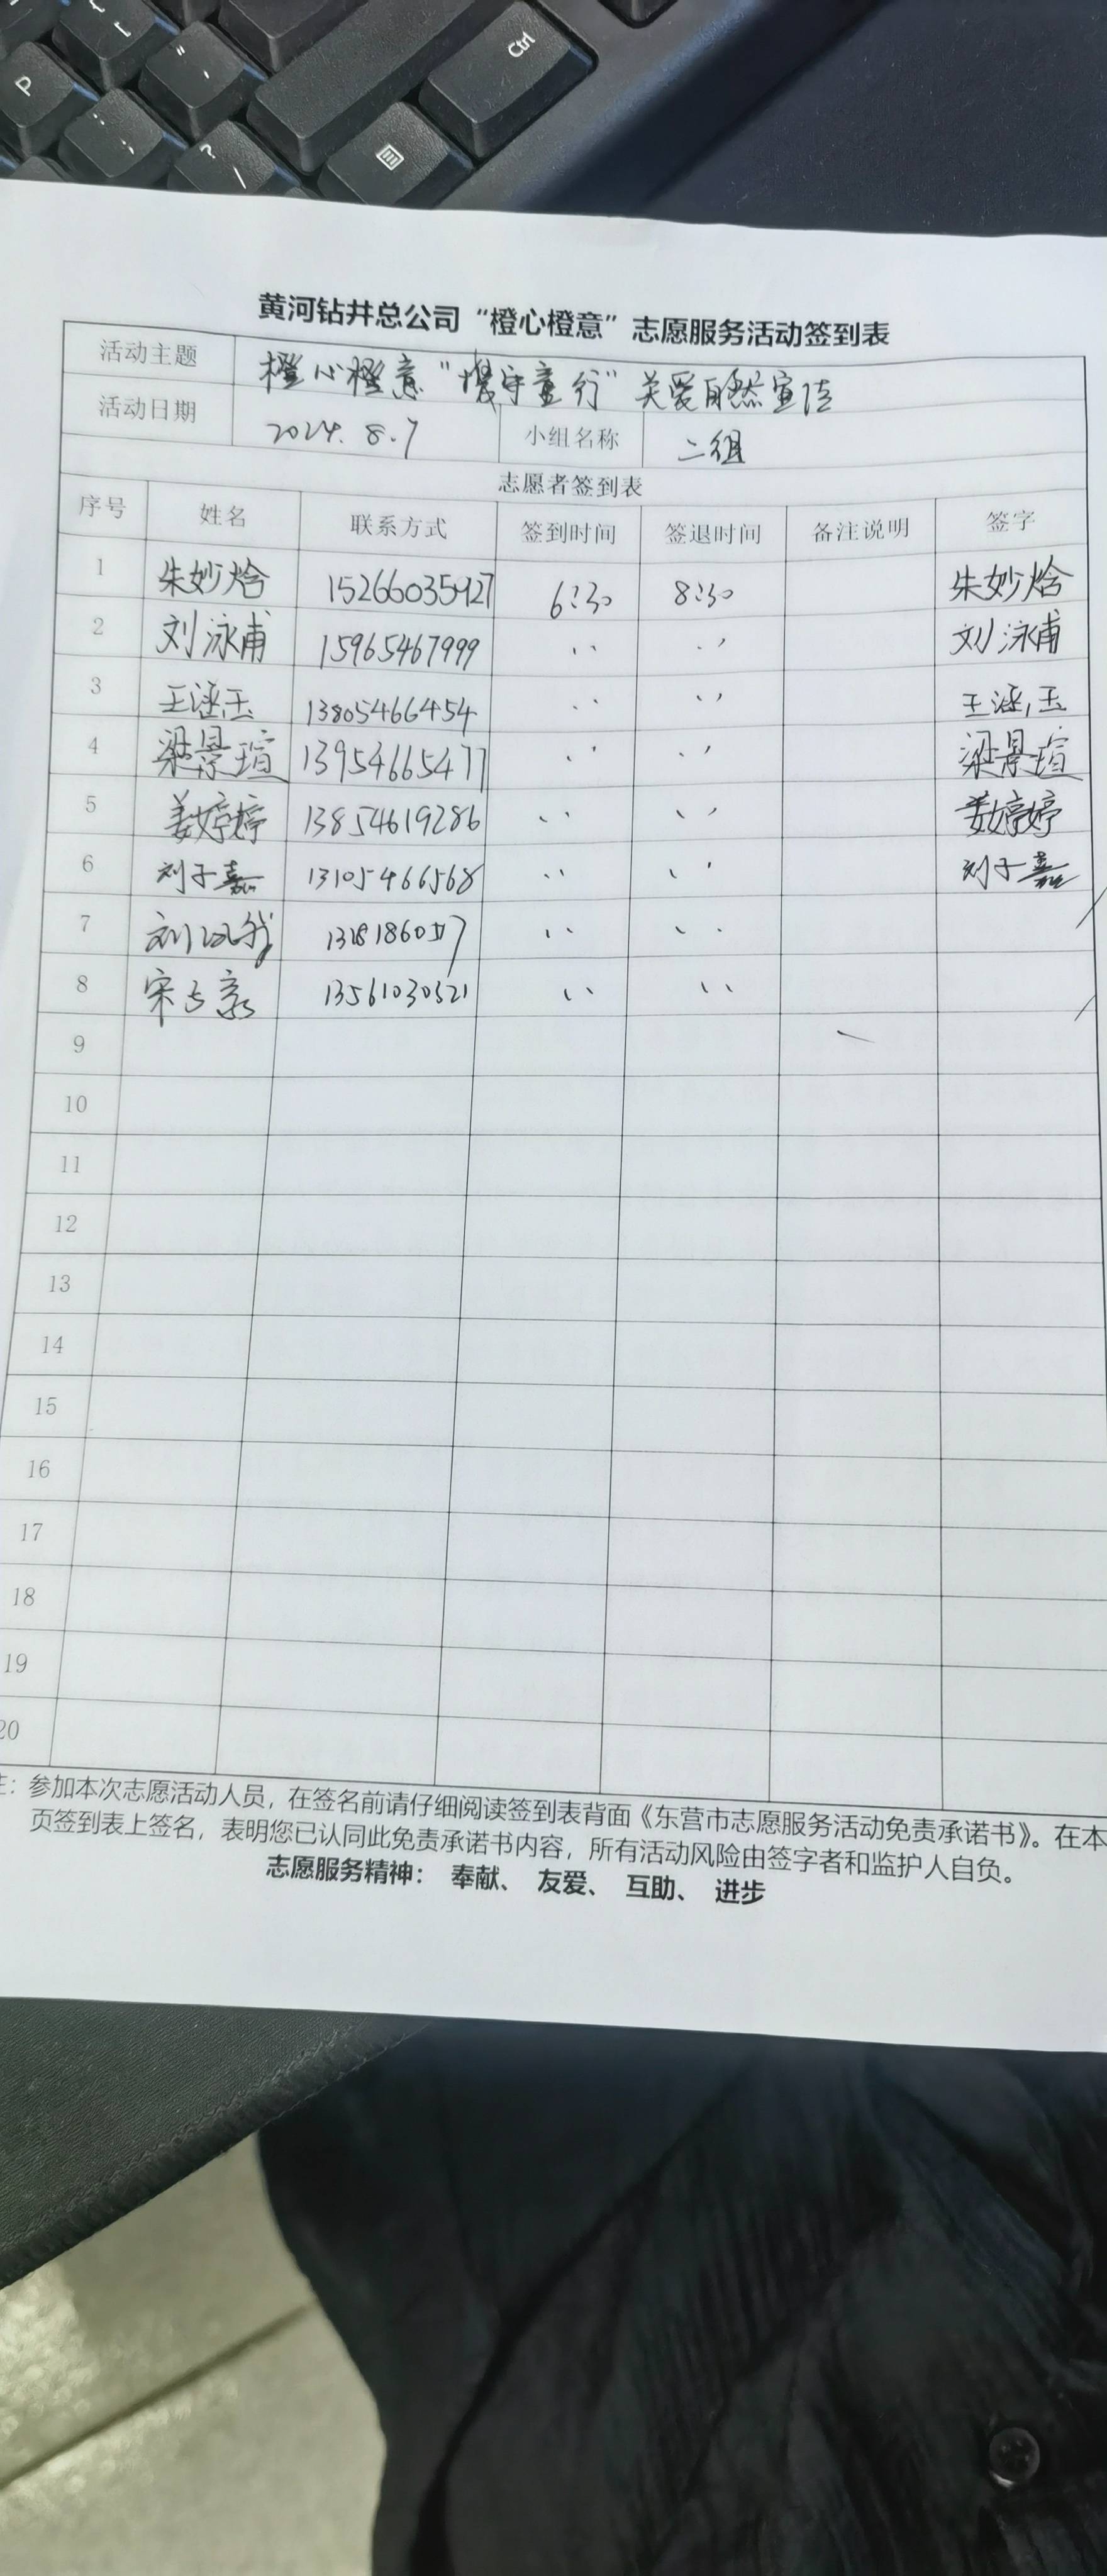 P
{
[
"
'
:
;
?
/
Ctrl
黄河钻井总公司“橙心橙意”志愿服务活动签到表
活动主题 橙心橙意“携守童行”关爱自然宣传
活动日期 2024.8.7 小组名称 二组
志愿者签到表
序号 姓名 联系方式 签到时间 签退时间 备注说明 签字
1 朱妙焓 15266035427 6:30 8:30 朱妙焓
2 刘泳甫 15965467999 〃 〃 刘泳甫
3 王涵玉 13805466454 〃 〃 王涵玉
4 梁景瑄 13954665477 〃 〃 梁景瑄
5 姜婷婷 13854619286 〃 〃 姜婷婷
6 刘子嘉 13105466568 〃 〃 刘子嘉
7 刘 〃 〃
8 宋 13561030521 〃 〃
9
10
11
12
13
14
15
16
17
18
19
20
注：参加本次志愿活动人员，在签名前请仔细阅读签到表背面《东营市志愿服务活动免责承诺书》。在本
页签到表上签名，表明您已认同此免责承诺书内容，所有活动风险由签字者和监护人自负。
志愿服务精神： 奉献、 友爱、 互助、 进步